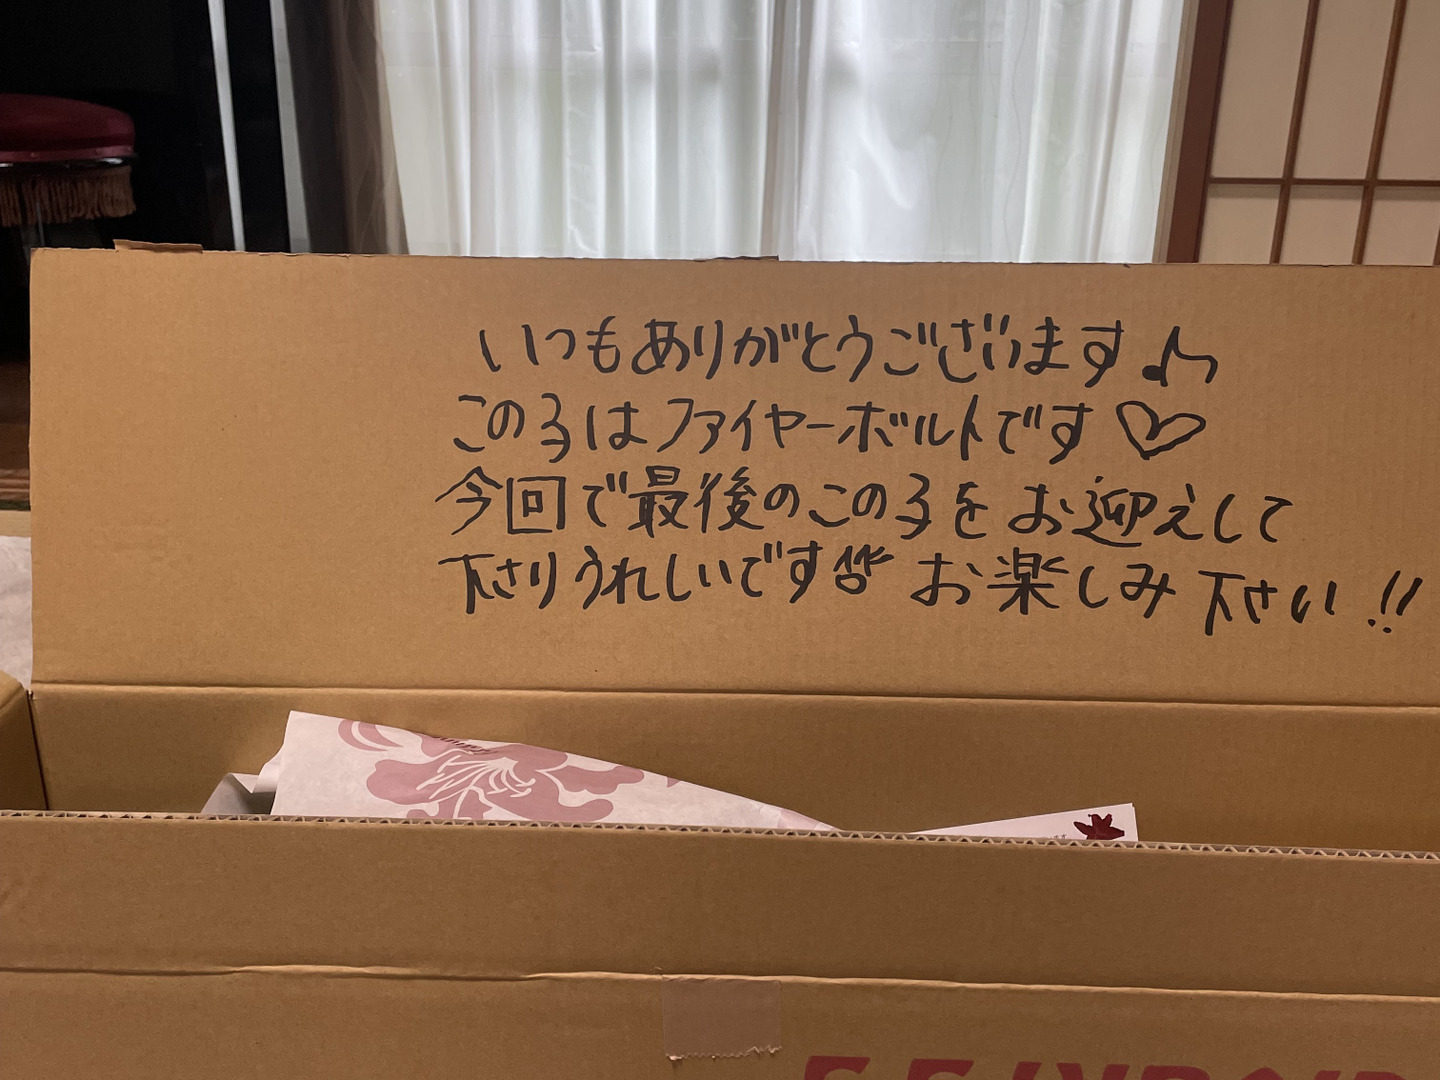 いつもありがとうございます♪
この子はファイヤーボルトです♡
今回で最後のこの子をお迎えして
下さりうれしいです お楽しみ下さい!!